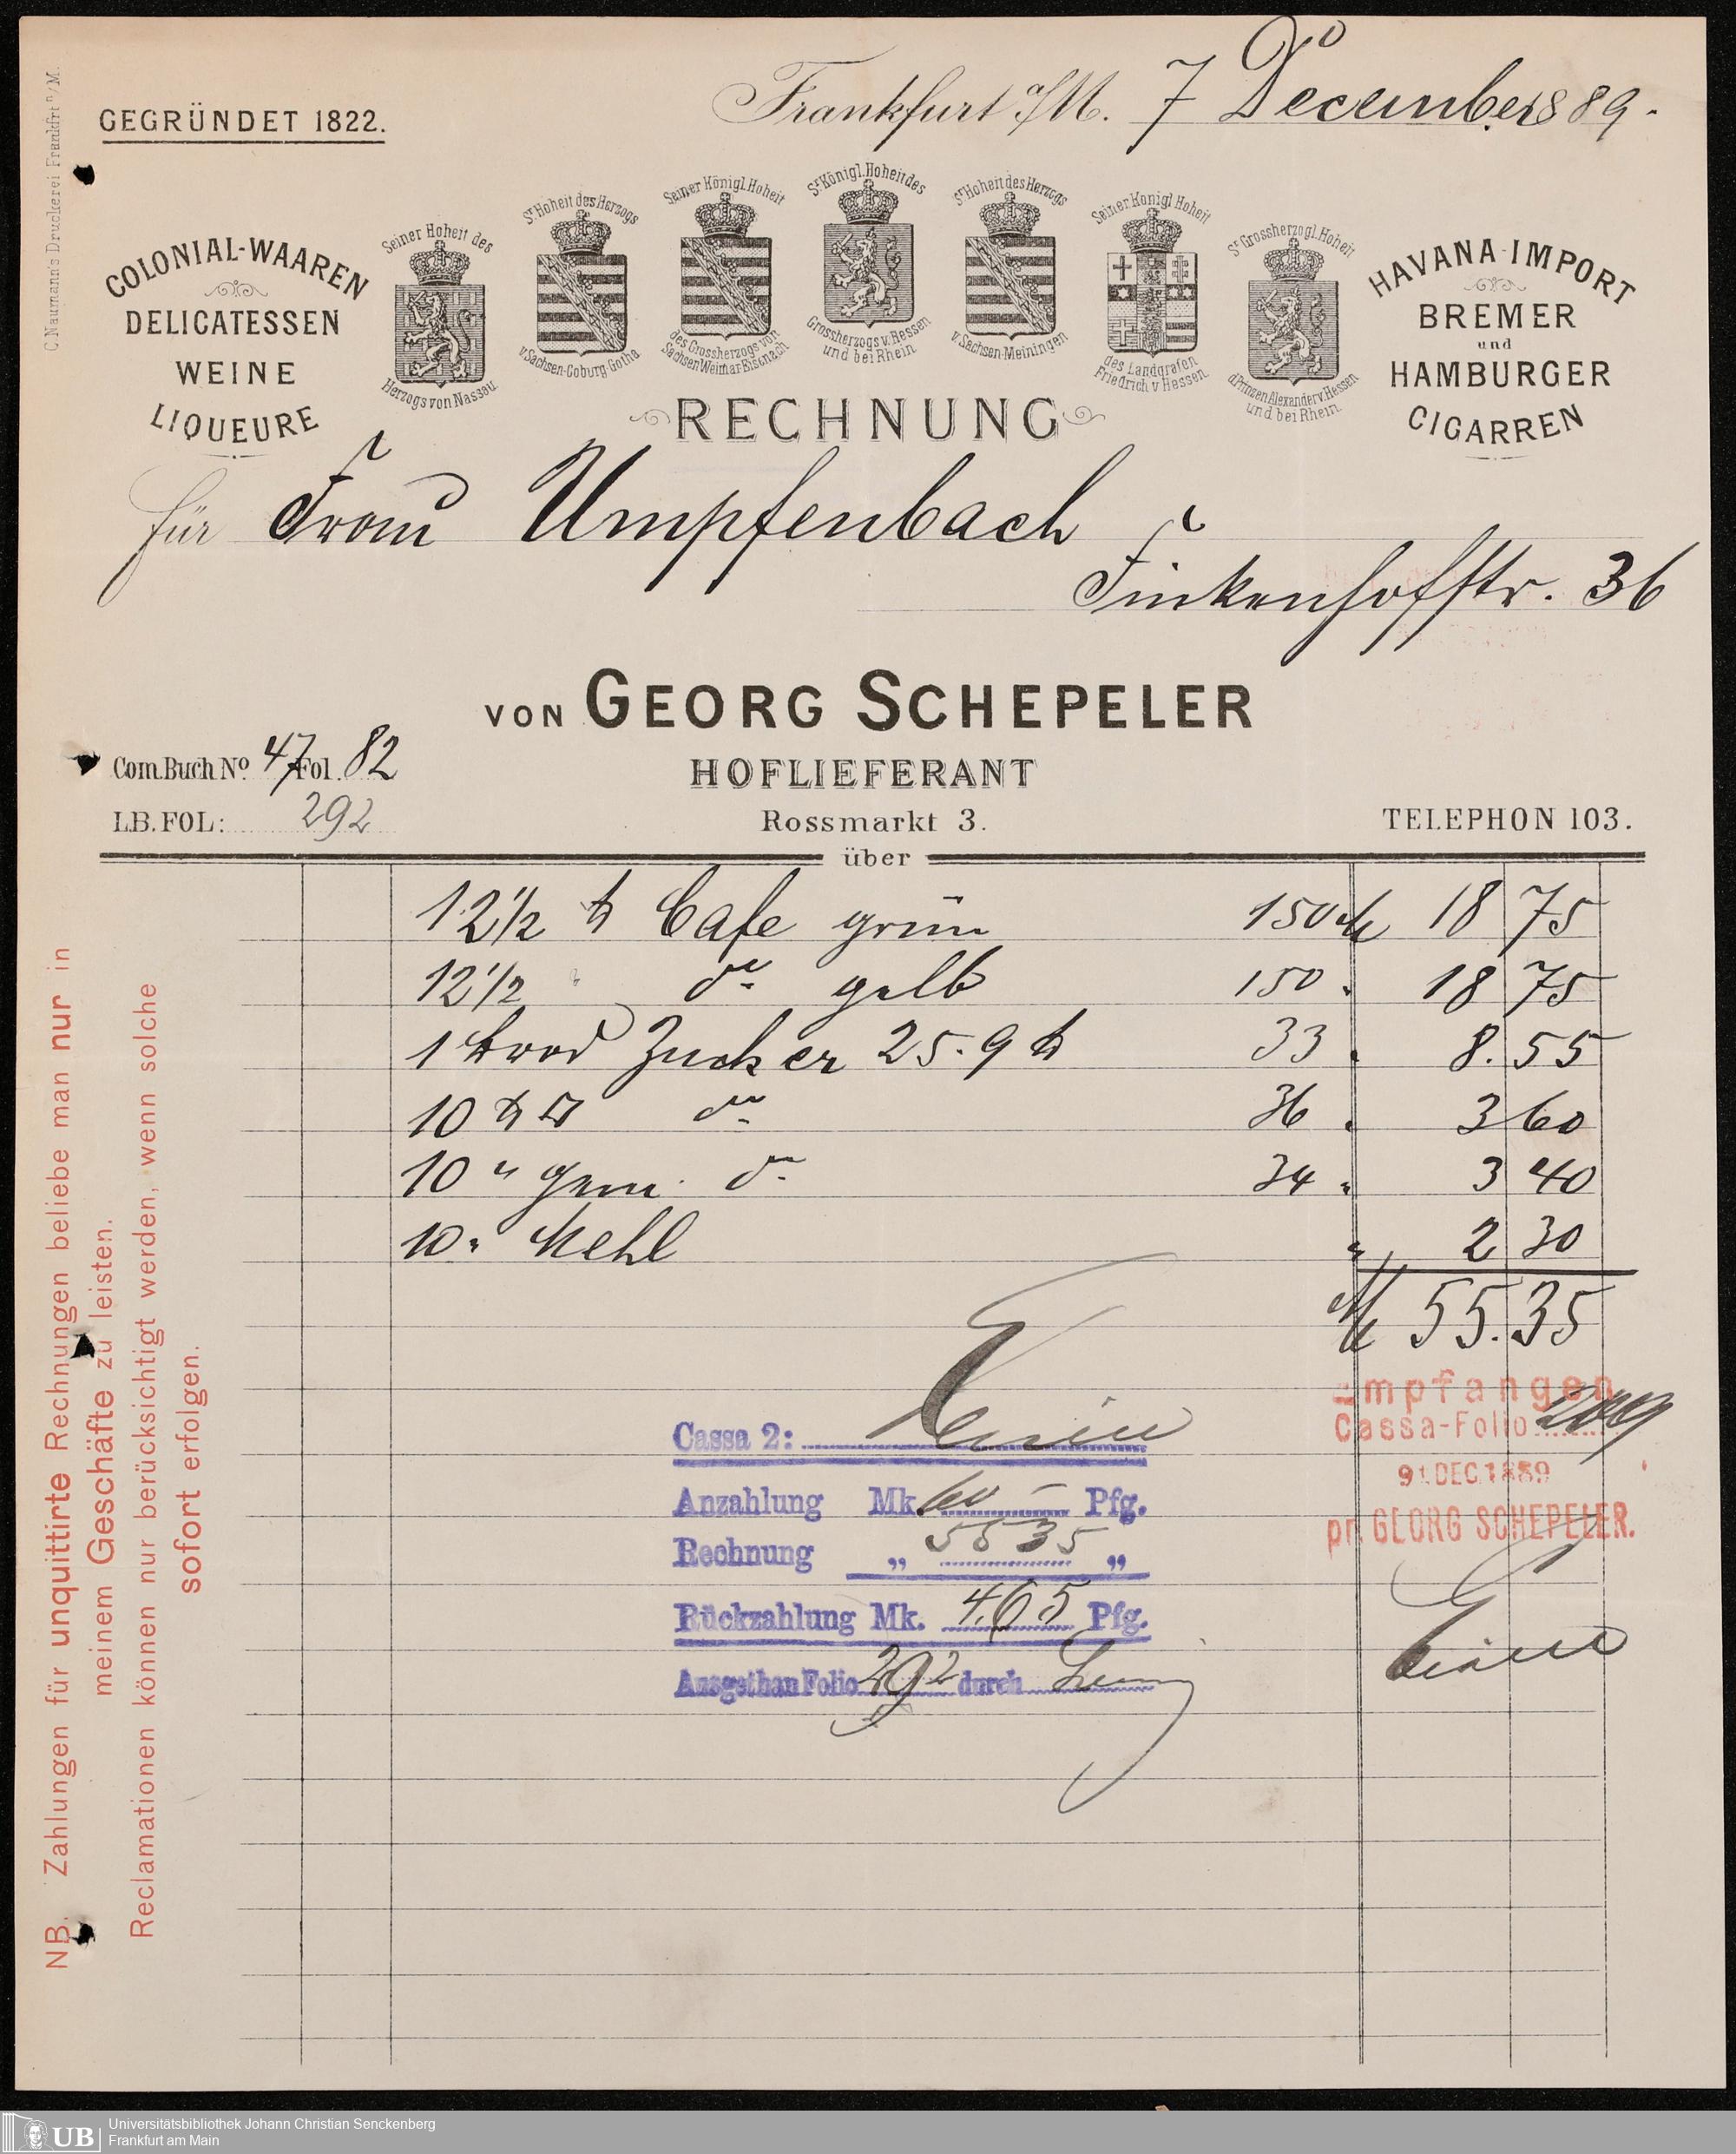 C. Naumann's Druckerei Frankfrt a/M.
GEGRÜNDET 1822.
Frankfurt a/M. 7 December 1889.
COLONIAL-WAAREN
DELICATESSEN
WEINE
LIQUEURE
Seiner Hoheit des
Herzogs von Nassau
Sr Hoheit des Herzogs
v. Sachsen-Coburg-Gotha
Seiner Königl. Hoheit
des Grossherzogs von
Sachsen Weimar-Eisenach
Sr Königl. Hoheit des
Grossherzogs v. Hessen
und bei Rhein.
Sr Hoheit des Herzogs
v. Sachsen-Meiningen
Seiner Königl Hoheit
des Landgrafen
Friedrich v Hessen.
Sr Grossherzogl. Hoheit
d. Prinzen Alexander v. Hessen
und bei Rhein.
HAVANA-IMPORT
BREMER
und
HAMBURGER
CIGARREN
RECHNUNG
für Frau Umpfenbach
Finkenhofstr. 36
VON GEORG SCHEPELER
Com. Buch No. 47 Fol. 82
HOFLIEFERANT
LB. FOL: 292
Rossmarkt 3.
TELEPHON 103.
über
12 1/2 ℔ Cafe grün 150 M 18 75
12 1/2 do gelb 150 . 18 75
1 Brod Zucker 25.9 ℔ 33 . 8.55
10 ℔ do 36 . 3 60
10 " gem. do 34 " 3 40
10 " Mehl " 2 30
M 55.35
Empfangen
Cassa-Folio
9 DEC. 1889
pr. GEORG SCHEPELER.
Cassa 2:
Anzahlung Mk. 60 – Pfg.
Rechnung „ 55 35 „
Rückzahlung Mk. 4.65 Pfg.
Ausgethan Folio 292 durch
NB. Zahlungen für unquittirte Rechnungen beliebe man nur in
meinem Geschäfte zu leisten.
Reclamationen können nur berücksichtigt werden, wenn solche
sofort erfolgen.
UB
Universitätsbibliothek Johann Christian Senckenberg
Frankfurt am Main